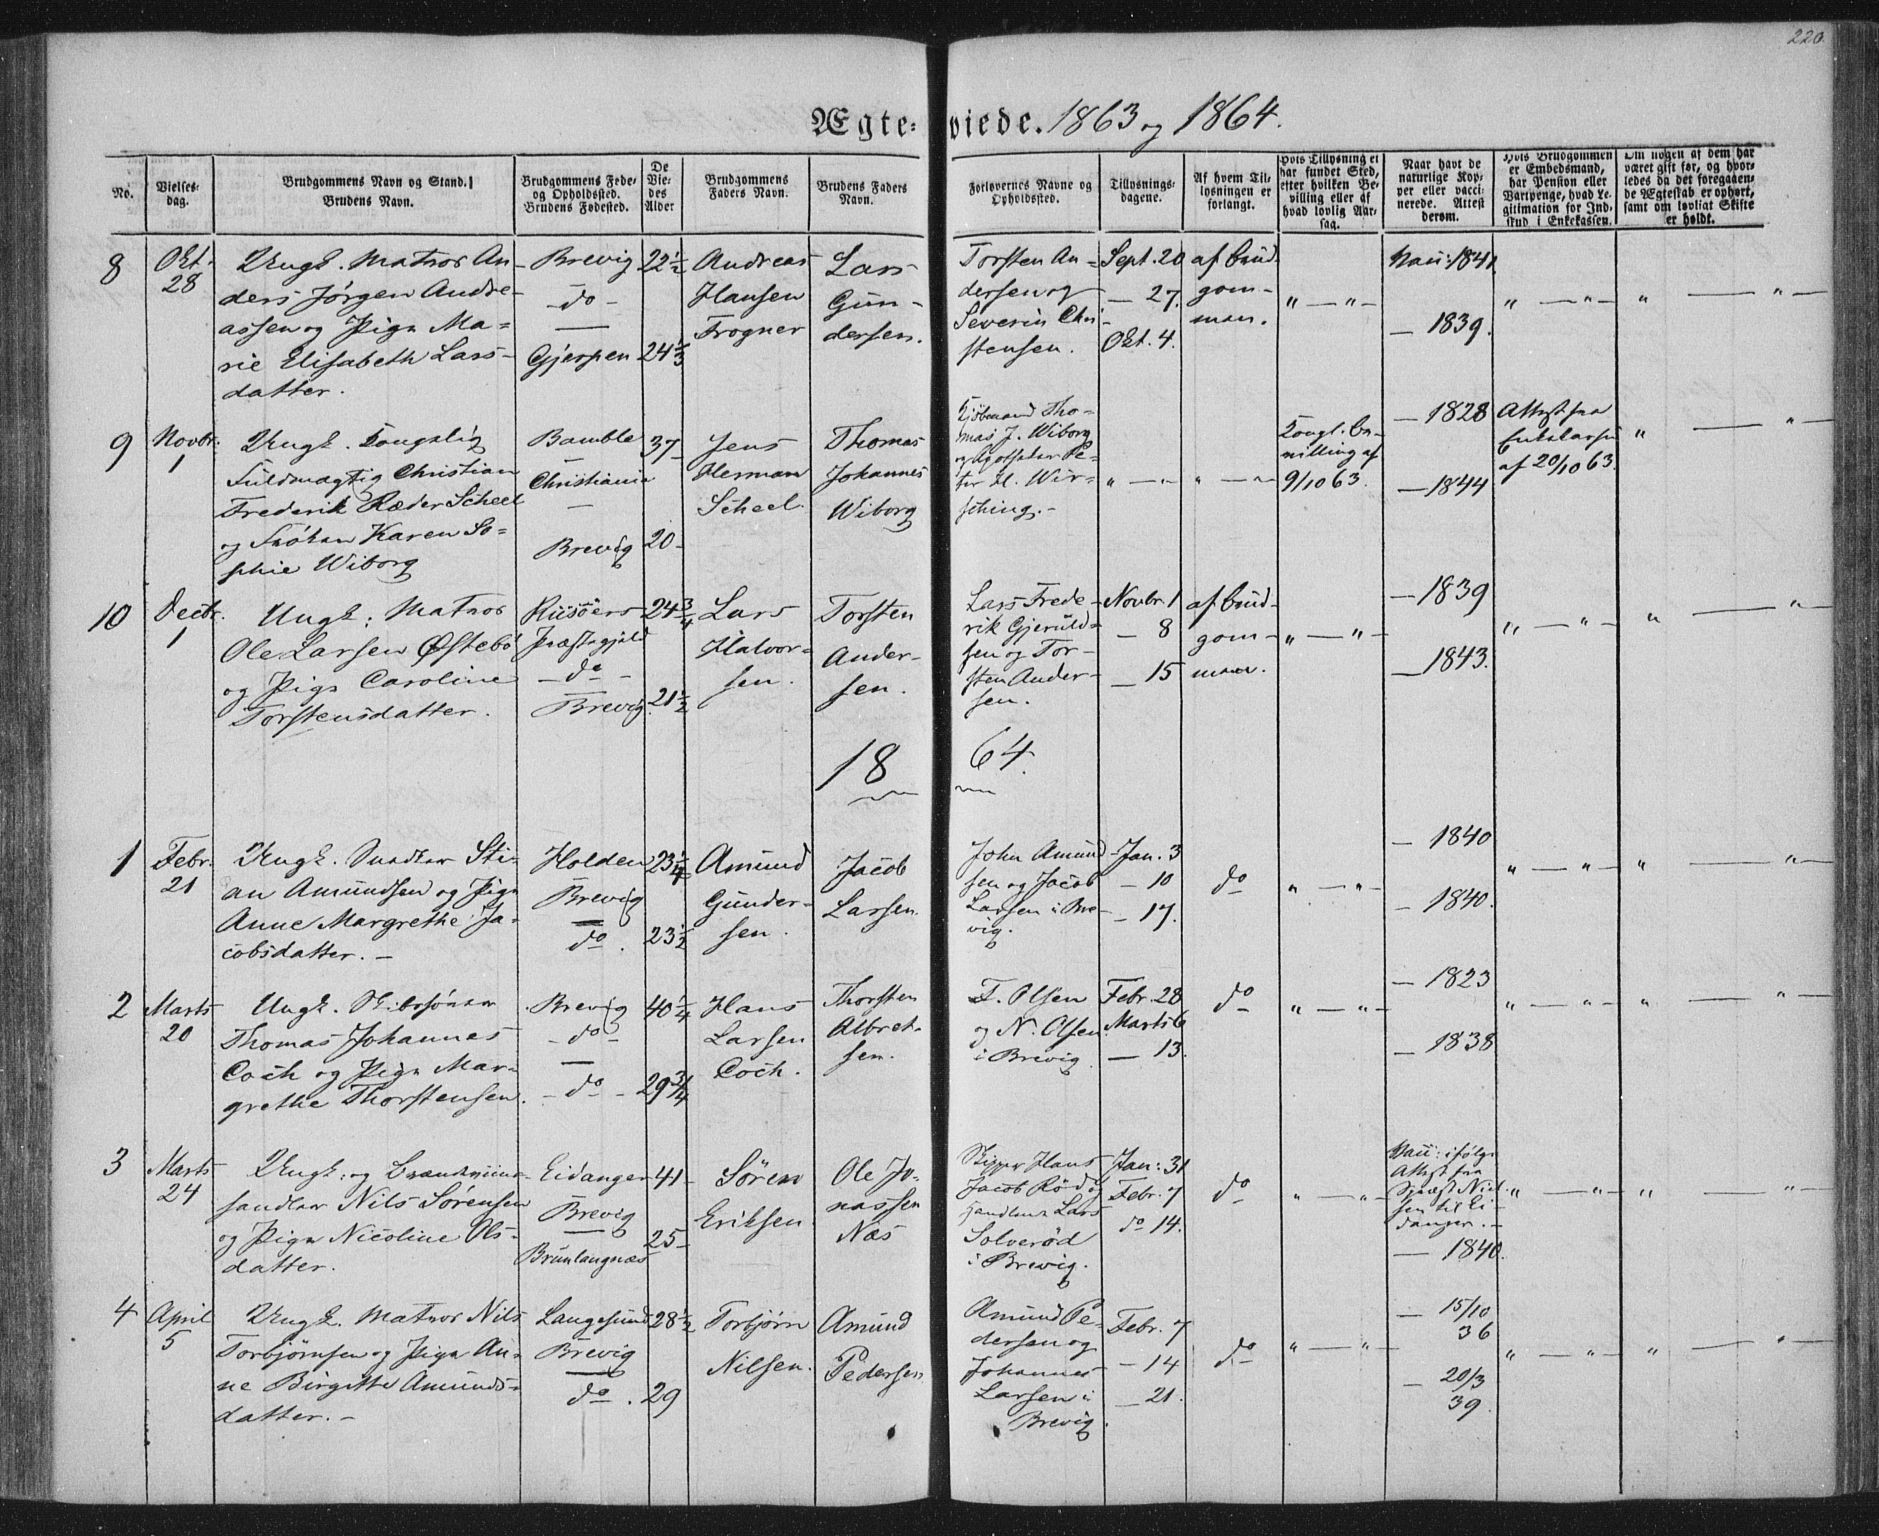 220.
Ægteviede. 1863 og 1864.
No.
Vielses-
dag.
Brudgommens Navn og Stand.
Brudens Navn.
Brudgommens Føde-
og Opholdssted.
Brudens Fødested.
De
Vie-
des
Alder
Brudgommens
Faders Navn.
Brudens Faders
Navn.
Forlovernes Navne og
Opholdssted.
Tillysnings-
dagene.
Af hvem Til-
lysningen er
forlangt.
Hvis Tillysning ei
har fundet Sted,
efter hvilken Be-
villing eller af
hvad lovlig Aar-
sag.
Naar havt de
naturlige Kop-
per eller vacci-
nerede. Attest
derom.
Hvis Brudgommen
er Embedsmand,
har Pension eller
Vartpenge, hvad Le-
gitimation for Ind-
skud i Enkekassen.
Om nogen af dem har
været gift før, og hvor-
ledes da det foregaaen-
de Ægteskab er ophørt,
samt om lovligt Skifte
er holdt.
8
Okt.
28
Ungk. Matros An-
ders Jørgen Andre-
assen og Pige Ma-
rie Elisabeth Lars-
datter.
Brevig
do
Gjerpen
22½
24⅓
Andreas
Hansen
Frogner
Lars
Gun-
dersen.
Torsten An-
dersen og
Severin Chri-
stensen.
Sept. 20
— 27.
Okt. 4.
af Brud-
gom-
man.
" — " —
Vacc: 1841
— 1839.
" — " —
" — " —
9
Novbr.
1
Ungk. Kongelig
Fuldmægtig Christian
Frederik Ræder Scheel
og Frøken Karen So-
phie Wiborg
Bamble
Christiania
Brevig
37
20
Jens
Herman
Scheel.
Thomas
Johannes
Wiborg
Kjøbmand Tho-
mas J. Wiborg
og Apotheker Pe-
ter H. Wir-
sching.
" — "
" — "
Kongl. Be-
villing af
9/10 63.
— 1828
— 1844
Attest fra
Enkekassen
af 20/10 63.
" — "
10
Decbr.
1
Ungk: Matros
Ole Larsen Østebø
og Pige Caroline
Torstensdatter.
Risöers
Præstegjeld
do
Brevig
24¾
21½
Lars
Halvor-
sen.
Torsten
Ander-
sen.
Lars Frede-
rik Gjeruld-
sen og Tor-
sten Ander-
sen.
Novbr. 1
— 8
— 15
af Brud-
gom-
man.
" — " —
— 1839
— 1843.
" — " —
" — "
18 64.
1
Febr.
21
Ungk. Snedker Sti-
an Amundsen og Pige
Anne Margrethe Ja-
cobsdatter. —
Holden
Brevig
do.
23¼
23½
Amund
Gunder-
sen.
Jacob
Larsen
John Amund-
sen og Jacob
Larsen i Bre-
vig.
Jan. 3
— 10
— 17.
do
" — " —
— 1840
— 1840.
" — " —
" — "
2
Marts
20
Ungk. Skibstömrer
Thomas Johannes
Coch og Pige Mar-
grethe Thorstensen.
Brevig
do
do
40¼
29¾
Hans
Larsen
Coch.
Thorsten
Albret-
sen.
T. Olsen
og N. Olsen
i Brevig
Febr. 28
Marts 6
— 13.
do
" — " —
— 1823
— 1838
" — " —
" — "
3
Marts
24
Ungk: og Brændeviins-
handler Nils Sørensen
og Pige Nicoline Ols-
datter.
Eidanger
Brevig
Brunlangnæs
41
25
Sören
Eriksen
Ole Jo-
nassen
Næs
Skipper Hans
Jacob Röd og
Handlende Lars
Solveröd
i Brevig.
Jan: 31
Febr. 7
do 14.
do
" — " —
Vacc: ifølge
Attest fra
Spræst Niel-
sen til Ei-
danger. —
— 1840.
" — " —
" — "
4
April
5
Ungk. Matros Nils
Torbjørnsen og Pige An-
ne Birgitte Amunds-
datter. —
Langesund
Brevig
do.
28½
29
Torbjørn
Nilsen.
Amund
Pedersen
Amund Pe-
dersen og
Johannes
Larsen i
Brevig.
Febr. 7
— 14
— 21.
do
" — " —
— 15/10
36
— 20/3
39.
" — " —
" — "